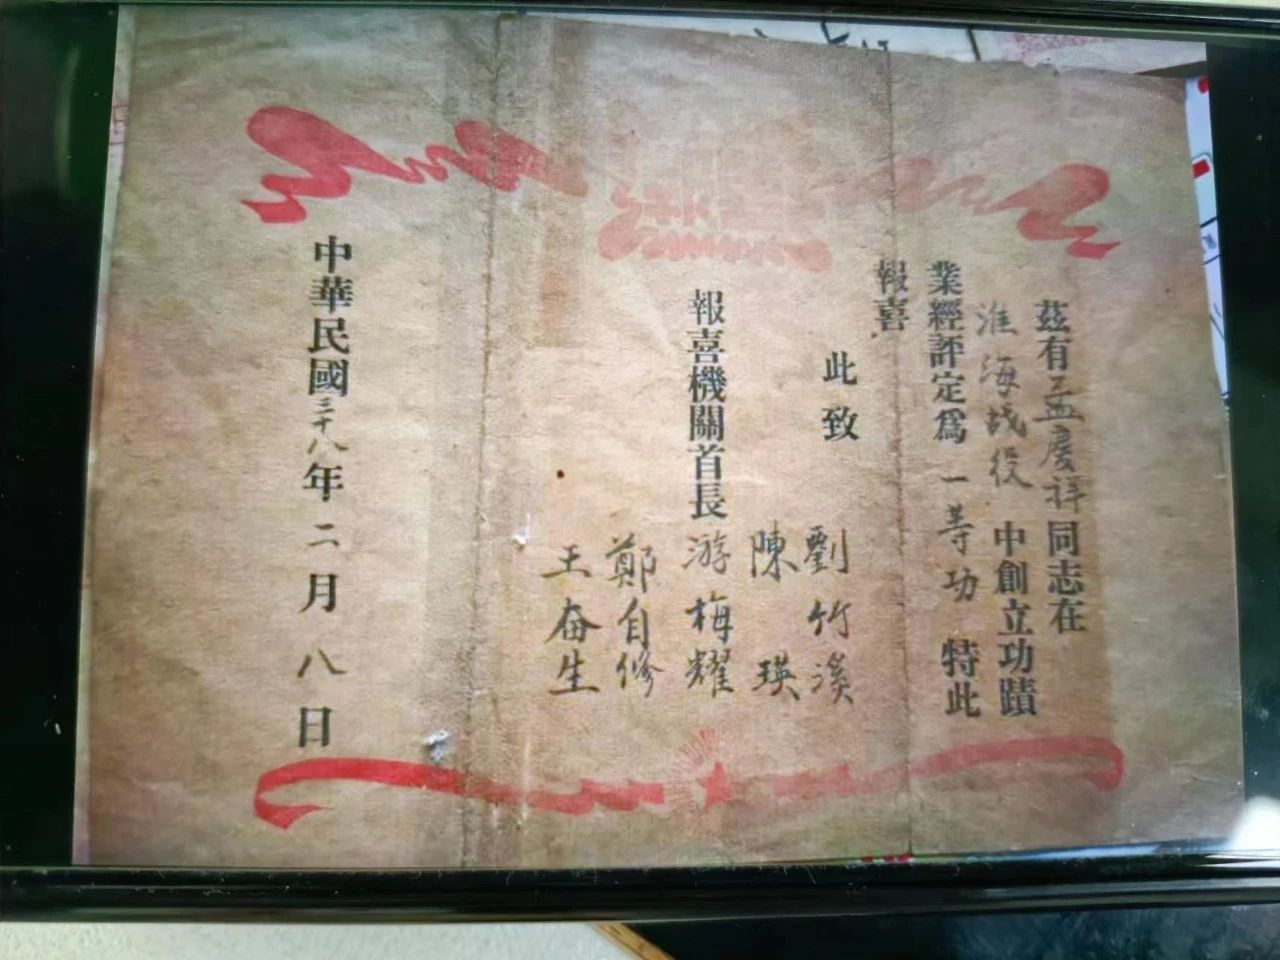 茲有孟慶祥同志在
淮海战役中創立功蹟
業經評定爲一等功特此
報喜
此致
報喜機關首長
劉竹溪
陳瑛
游梅耀
鄭自修
王奋生
中華民國三十八年二月八日